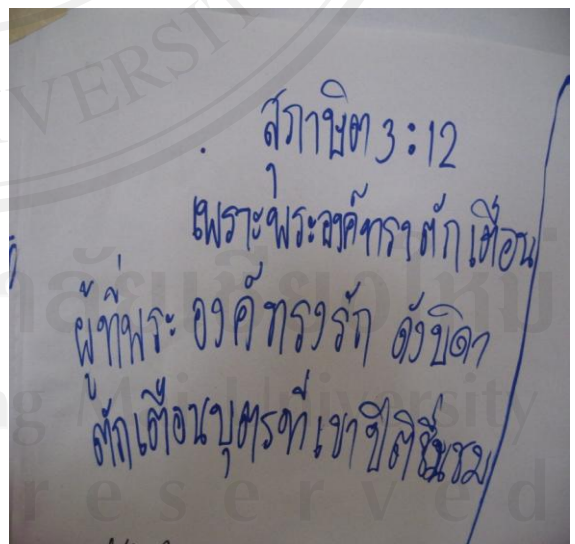 สุภาษิต 3:12
เพราะพระองค์ทรงตักเตือน
ผู้ที่พระองค์ทรงรัก ดังบิดา
ตักเตือนบุตรที่เขาปีติชื่นชม